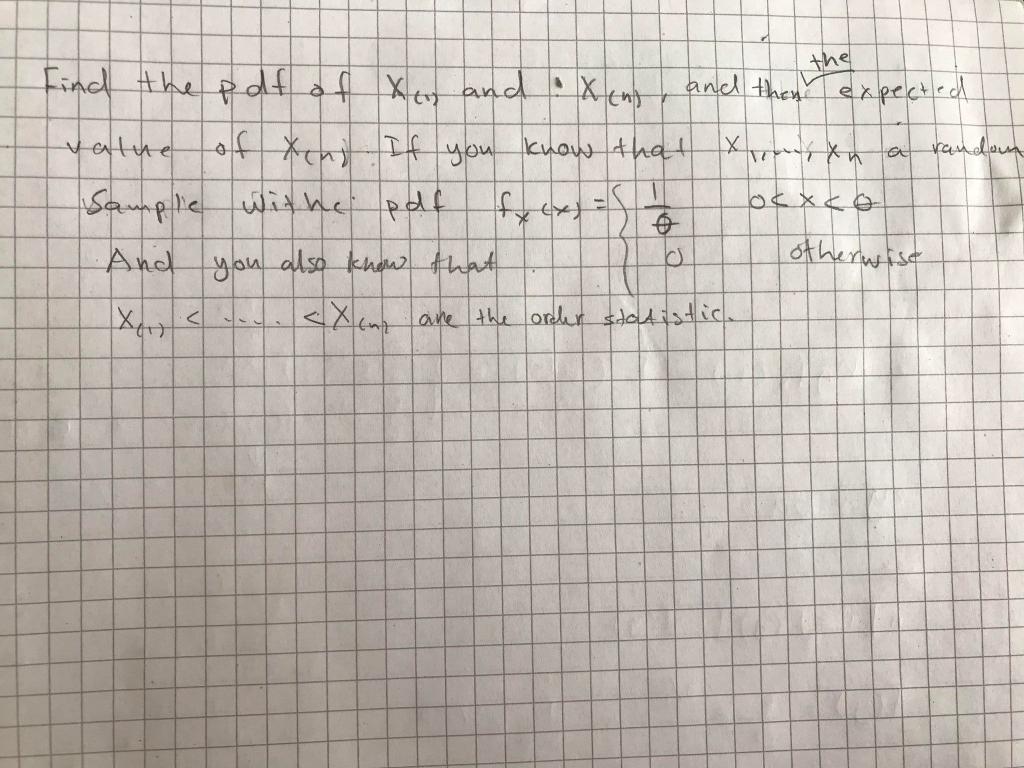 the
Find the pdf of X(1) and • X(n), and then expected
value of X(n). If you know that X1,....., Xn a random
Sample withe pdf fx(x) = { 1/θ 0 < x < θ
And you also know that 0 otherwise
X(1) < ..... < X(n) are the order statistic.